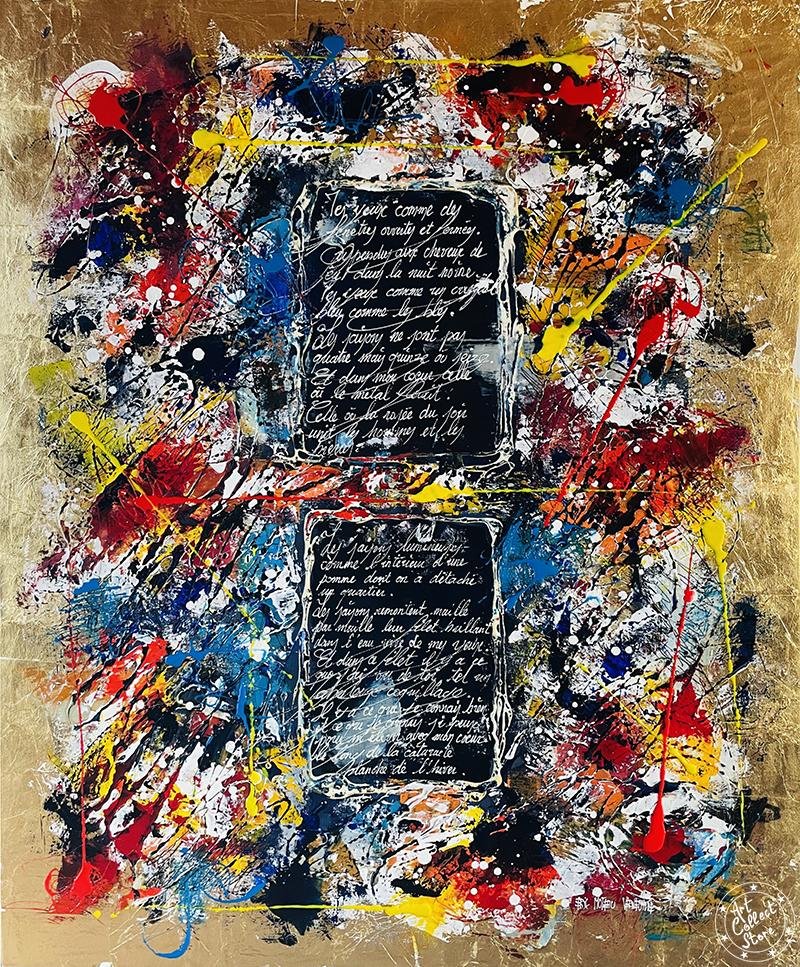 les yeux comme des
fenêtres ouvertes et fermées
suspendus aux cheveux de
dans la nuit noire
les yeux comme un
bleu comme les blés.
Les saisons ne sont pas
quatre mais quinze ou seize.
Et dans mon coeur celle
où le métal fleurit.
Celle où la rosée du soir
unit les hommes et les
Les saisons lumineuses
comme l'intérieur d'une
pomme dont on a détaché
un quartier.
Les saisons remontent maille
par maille leur filet brillant
dans l'eau vive de mes yeux
Et dans ce filet il y a ce
tel un
coquillage
Il y a ce que je connais bien
avec mon coeur
le long de la cataracte
blanche de l'hiver
Art
Collect
Store